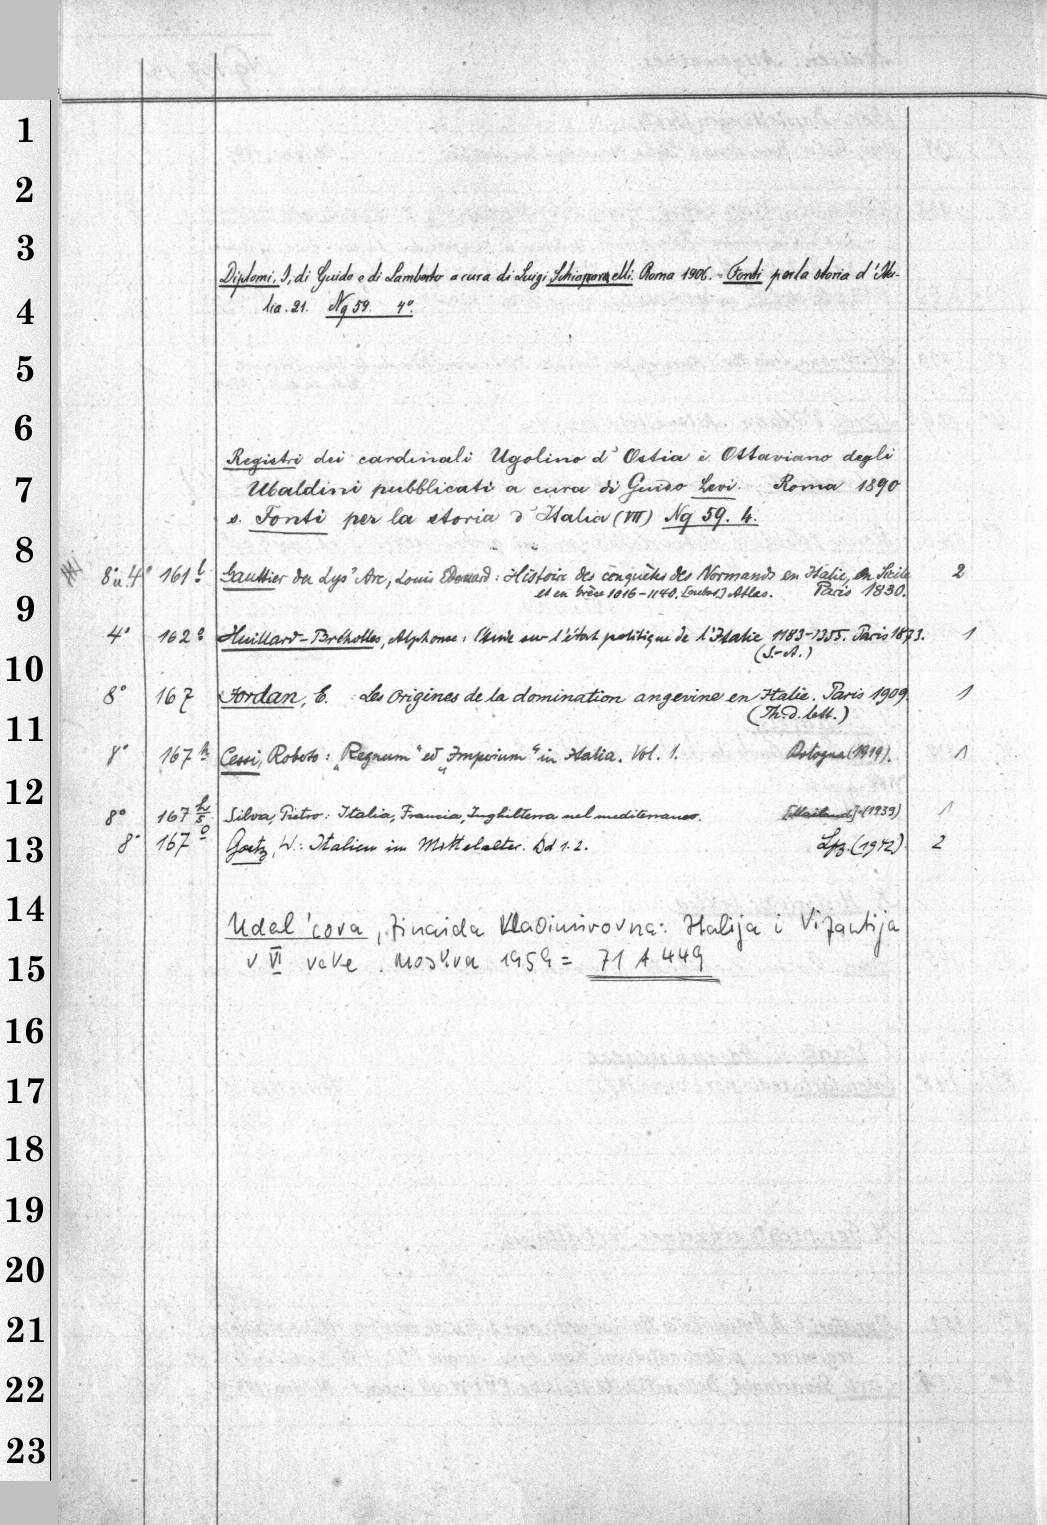 1
2
3
Diplomi, I, di Guido e di Lamberto a cura di Luigi Schiaparelli. Roma 1906. = Fonti per la storia d'Ita-
4
lia. 21. Nq 59. 4°.
5
6
Registri dei cardinali Ugolino d'Ostia e Ottaviano degli
7
Ubaldini pubblicati a cura di Guido Levi. Roma 1890
s. Fonti per la storia d'Italia (VII) Nq 59. 4.
8
8° u. 4° 161 l Gauttier du Lys d'Arc, Louis Edouard: Histoire des conquêtes des Normands en Italie, en Sicile 2
et en Grèce 1016-1140. [nebst] Atlas. Paris 1830.
9
4° 162 a Huillard-Bréholles, Alphonse: Etude sur l'état politique de l'Italie 1183-1355. Paris 1873. 1
(S.-A.)
10
8° 167 Jordan, E. Les origines de la domination angevine en Italie. Paris 1909. 1
(Th. d. lett.)
11
8° 167 h Cessi, Roberto: „Regnum" ed „Imperium" in Italia. Vol. 1. Bologna (1919). 1
12
8° 167 h/5 Silva, Pietro: Italia, Francia, Inghilterra nel mediterraneo. [Mailand] (1939) 1
13
8° 167 o Goetz, W.: Italien im Mittelalter. Bd 1. 2. Lpz. (1942) 2
14
Udal'cova, Zinaida Vladimirovna: Italija i Vizantija
15
v VI veke. Moskva 1959 = 71 A 449
16
17
18
19
20
21
22
23